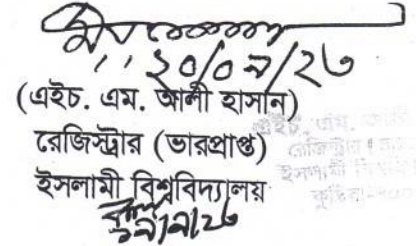 ২০/০৯/২৩
(এইচ. এম. আলী হাসান)
রেজিস্ট্রার (ভারপ্রাপ্ত)
ইসলামী বিশ্ববিদ্যালয়